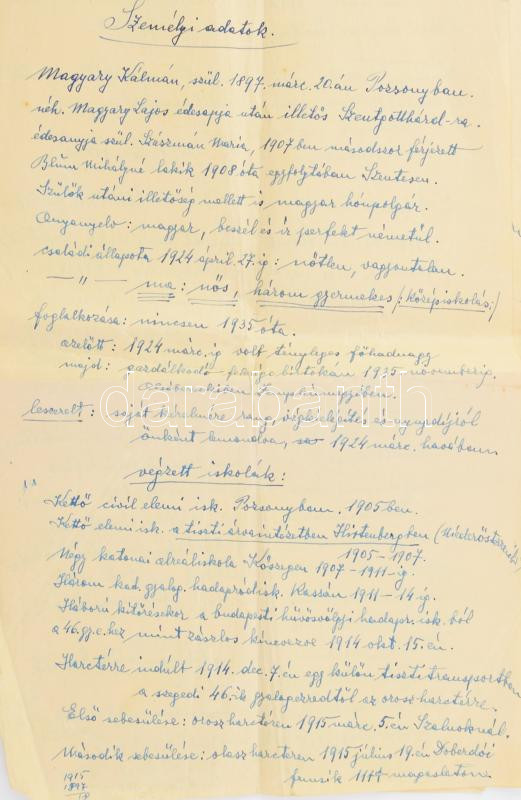 Személyi adatok.
Magyary Kálmán, szül. 1897. márc. 20.án Pozsonyban.
néh. Magyary Lajos édesapja után illetős Szentgotthárd-ra.
édesanyja szül. Szászmán Mária, 1907 ben másodszor férjezett
Blum Mihályné lakik 1908 óta egyfolytában Szentesen.
Szülők utáni illetőség mellett is magyar honpolgár.
Anyanyelv: magyar, beszél és ír perfekt németül.
családi állapota 1924 április 27.ig: nőtlen, vagyontalan.
— " — ma: nős, három gyermekes (: középiskolás:)
foglalkozása: nincsen 1935 óta.
azelőtt: 1924 márc. ig volt tényleges főhadnagy
majd: gazdálkodó birtokán 1935 novemberig.
leszerelt: saját kérelmére rang, végkielégítés és nyugdíjról
önként lemondva, 1924 márc. havában
végzett iskolák:
Kettő civil elemi isk. Pozsonyban, 1905-ben.
Kettő elemi isk. a tiszti árvaintézetben Hirtenbergben (Niederösterreich)
1905-1907.
Négy katonai alreáliskola Kőszegen 1907-1911-ig.
Három kad. gyalog. hadapródisk. Kassán 1911-14-ig.
Háború kitörésekor a budapesti hűvösvölgyi hadapr. isk. ból
a 46. gy.e.hez mint zászlós kinevezve 1914 okt. 15.én.
Harctérre indult 1914. dec. 7.én egy külön tiszti transportban
a szegedi 46.ik gyalogezredtől az orosz harctérre.
Első sebesülése: orosz harctéren 1915 márc. 5.én Szolnoknál.
Második sebesülése: olasz harctéren 1915 július 19.én Doberdói
fennsík magaslaton
1915
1897
18
darabanth